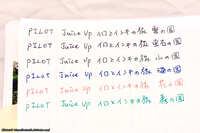 PILOT Juice Up イロとインキの旅 雪の国
PILOT Juice Up イロとインキの旅 宝石の国
PILOT Juice Up イロとインキの旅 山の国
PILOT Juice Up イロとインキの旅 海の国
PILOT Juice Up イロとインキの旅 花の国
PILOT Juice Up イロとインキの旅 森の国